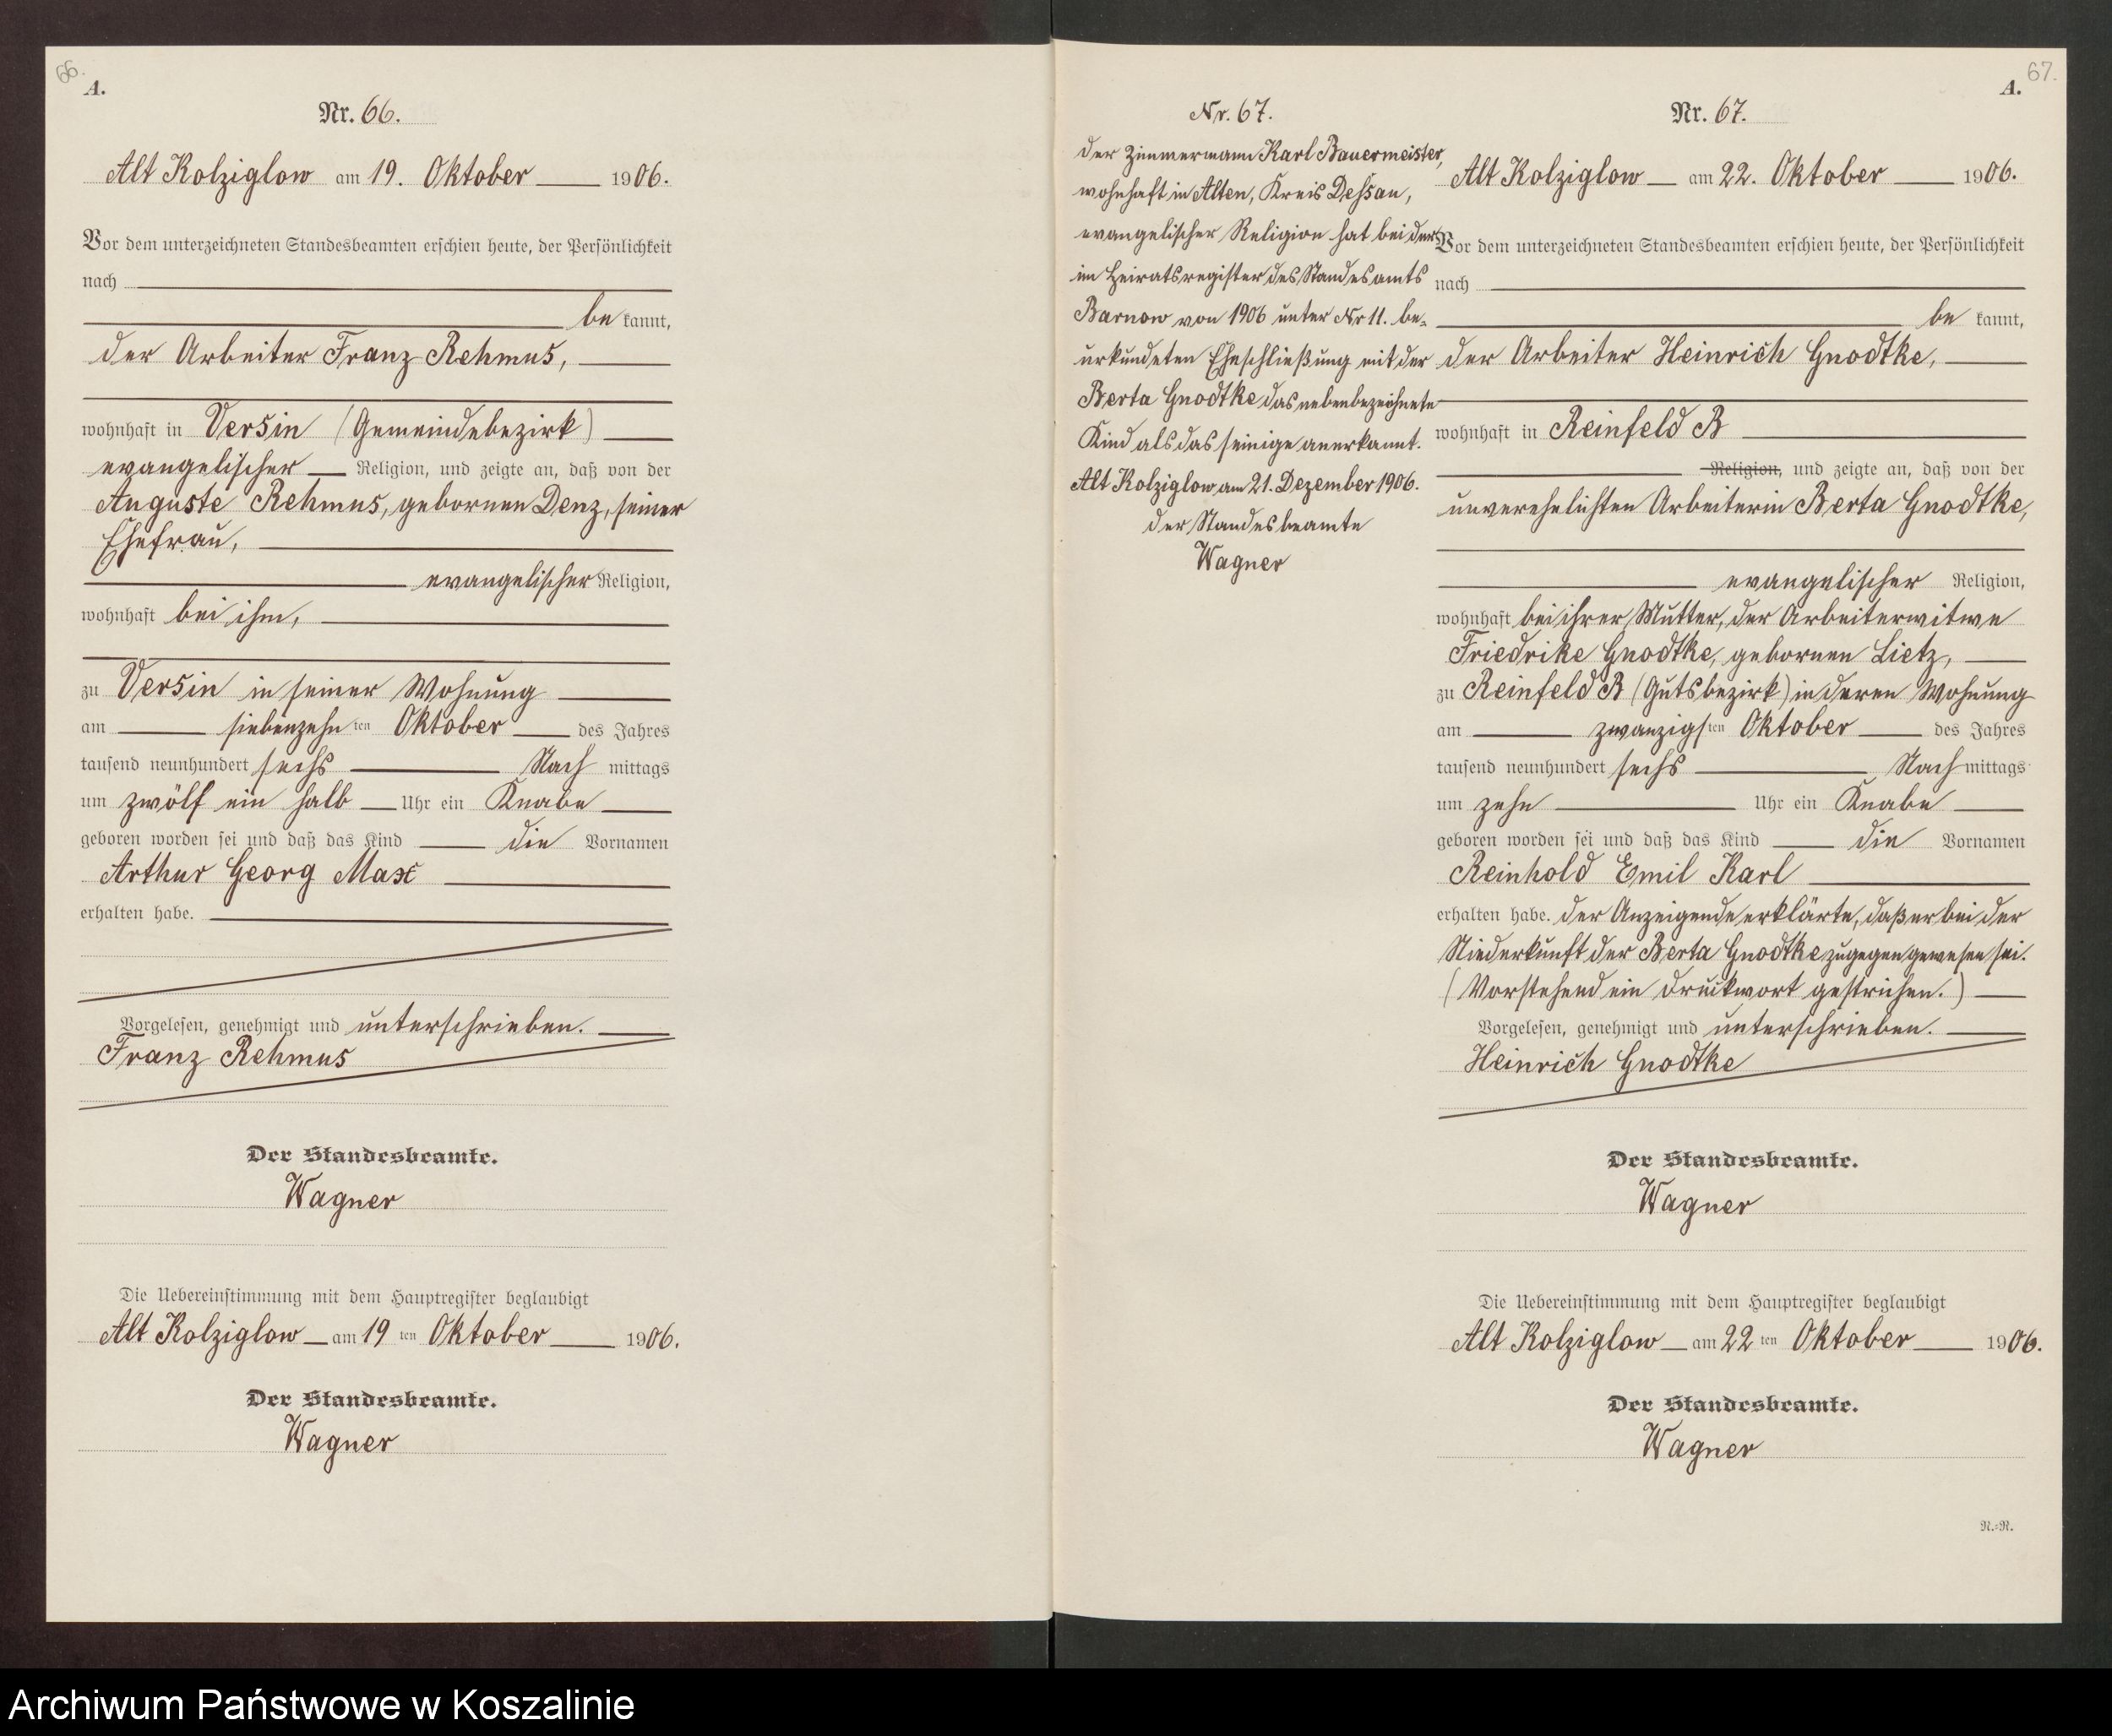 66.
A.
Nr. 66.
Alt Kolziglow am 19. Oktober 1906.
Vor dem unterzeichneten Standesbeamten erschien heute, der Persönlichkeit
nach
be kannt,
der Arbeiter Franz Rehmus,
wohnhaft in Versin (Gemeindebezirk)
evangelischer Religion, und zeigte an, daß von der
Auguste Rehmus, gebornen Denz, seiner
Ehefrau,
evangelischer Religion,
wohnhaft bei ihm,
zu Versin in seiner Wohnung
am siebenzehn ten Oktober des Jahres
tausend neunhundert sechs Nach mittags
um zwölf ein halb Uhr ein Knabe
geboren worden sei und daß das Kind die Vornamen
Arthur Georg Max
erhalten habe.
Vorgelesen, genehmigt und unterschrieben.
Franz Rehmus
Der Standesbeamte.
Wagner
Die Uebereinstimmung mit dem Hauptregister beglaubigt
Alt Kolziglow am 19 ten Oktober 1906.
Der Standesbeamte.
Wagner
Nr. 67.
Der Zimmermann Karl Bauermeister,
wohnhaft in Alten, Kreis Dessau,
evangelischer Religion hat bei der
im Heiratsregister des Standesamts
Barnow von 1906 unter Nr 11. be-
urkundeten Eheschließung mit der
Berta Gnodtke das nebenbezeichnete
Kind als das seinige anerkannt.
Alt Kolziglow am 21. Dezember 1906.
Der Standesbeamte
Wagner
67.
A.
Nr. 67.
Alt Kolziglow am 22. Oktober 1906.
Vor dem unterzeichneten Standesbeamten erschien heute, der Persönlichkeit
nach
be kannt,
der Arbeiter Heinrich Gnodtke,
wohnhaft in Reinfeld B
Religion, und zeigte an, daß von der
unverehelichten Arbeiterin Berta Gnodtke,
evangelischer Religion,
wohnhaft bei ihrer Mutter, der Arbeiterwitwe
Friedrike Gnodtke, gebornen Lietz,
zu Reinfeld B (Gutsbezirk) in deren Wohnung
am zwanzigs ten Oktober des Jahres
tausend neunhundert sechs Nach mittags
um zehn Uhr ein Knabe
geboren worden sei und daß das Kind die Vornamen
Reinhold Emil Karl
erhalten habe. Der Anzeigende erklärte, daß er bei der
Niederkunft der Berta Gnodtke zugegen gewesen sei.
(Vorstehend ein Druckwort gestrichen.)
Vorgelesen, genehmigt und unterschrieben.
Heinrich Gnodtke
Der Standesbeamte.
Wagner
Die Uebereinstimmung mit dem Hauptregister beglaubigt
Alt Kolziglow am 22 ten Oktober 1906.
Der Standesbeamte.
Wagner
N.=R.
Archiwum Państwowe w Koszalinie